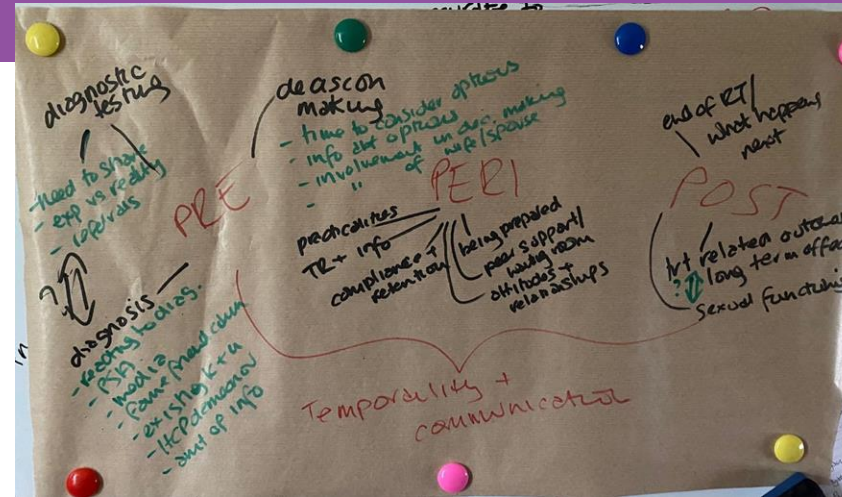 diagnostic
testing
- need to share
- exp vs reality
- referrals
PRE
?
diagnosis
- reacting to diag.
- PSA
- media
- fame friend comm
- existing k + u
- HCP demeanor
- amt of info
deascon
making
- time to consider options
- info abt options
- involvement in dec. making
- " of wife/spouse
PERI
practicalities
TR + info
compliance +
retention
being prepared
peer support/
waiting room
attitudes +
relationships
end of RT/
what happens
next
POST
trt related outcomes
long term effec
?
sexual functioning
Temporality +
communication
in